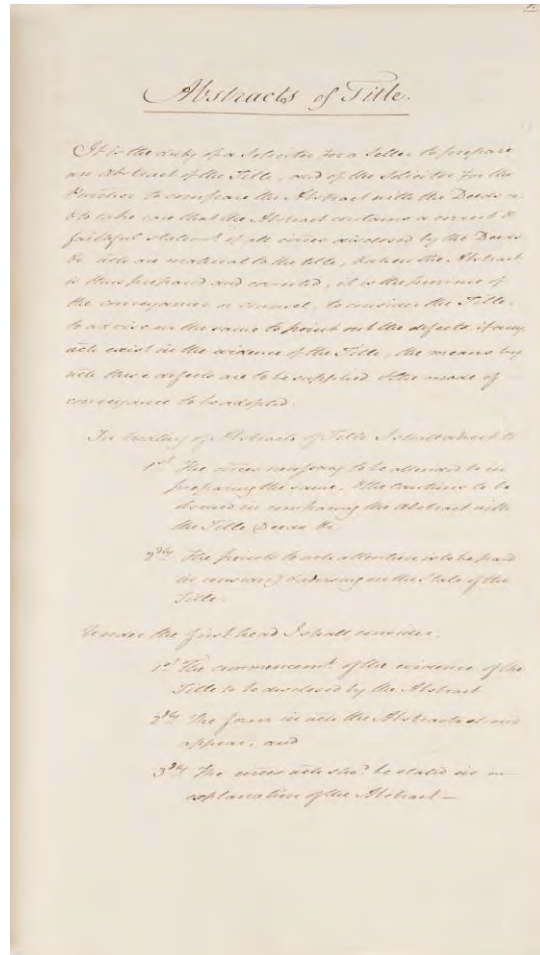 1.
Abstracts of Title.
It is the duty of a Solicitor for a Seller to prepare
an Abstract of the Title, and of the Solicitor for the
Purchaser to compare the Abstract with the Deeds &
& to take care that the Abstract contains a correct &
faithful statemt. of all circes disclosed by the Deeds
&c wch are material to the title, & when the Abstract
is thus prepared and corrected, it is the province of
the conveyancer or counsel, to consider the Title,
to advise on the same to point out the defects, if any
wch exist in the evidence of the Title, the means by
wch these defects are to be supplied & the mode of
conveyance to be adopted.
In treating of Abstracts of Title I shall advert to
1st. The circes necessary to be attended to in
preparing the same, & the cautions to be
observed in comparing the Abstract with
the Title Deeds &c
2dly The points to wch attention is to be paid
in & advising on the State of the
Title.
Under the first head I shall consider,
1st The commencemt. of the evidence of the
Title to be disclosed by the Abstract
2dly The form in wch the Abstract should
appear, and
3dly The circes wch shod. be stated in
explanation of the Abstract —